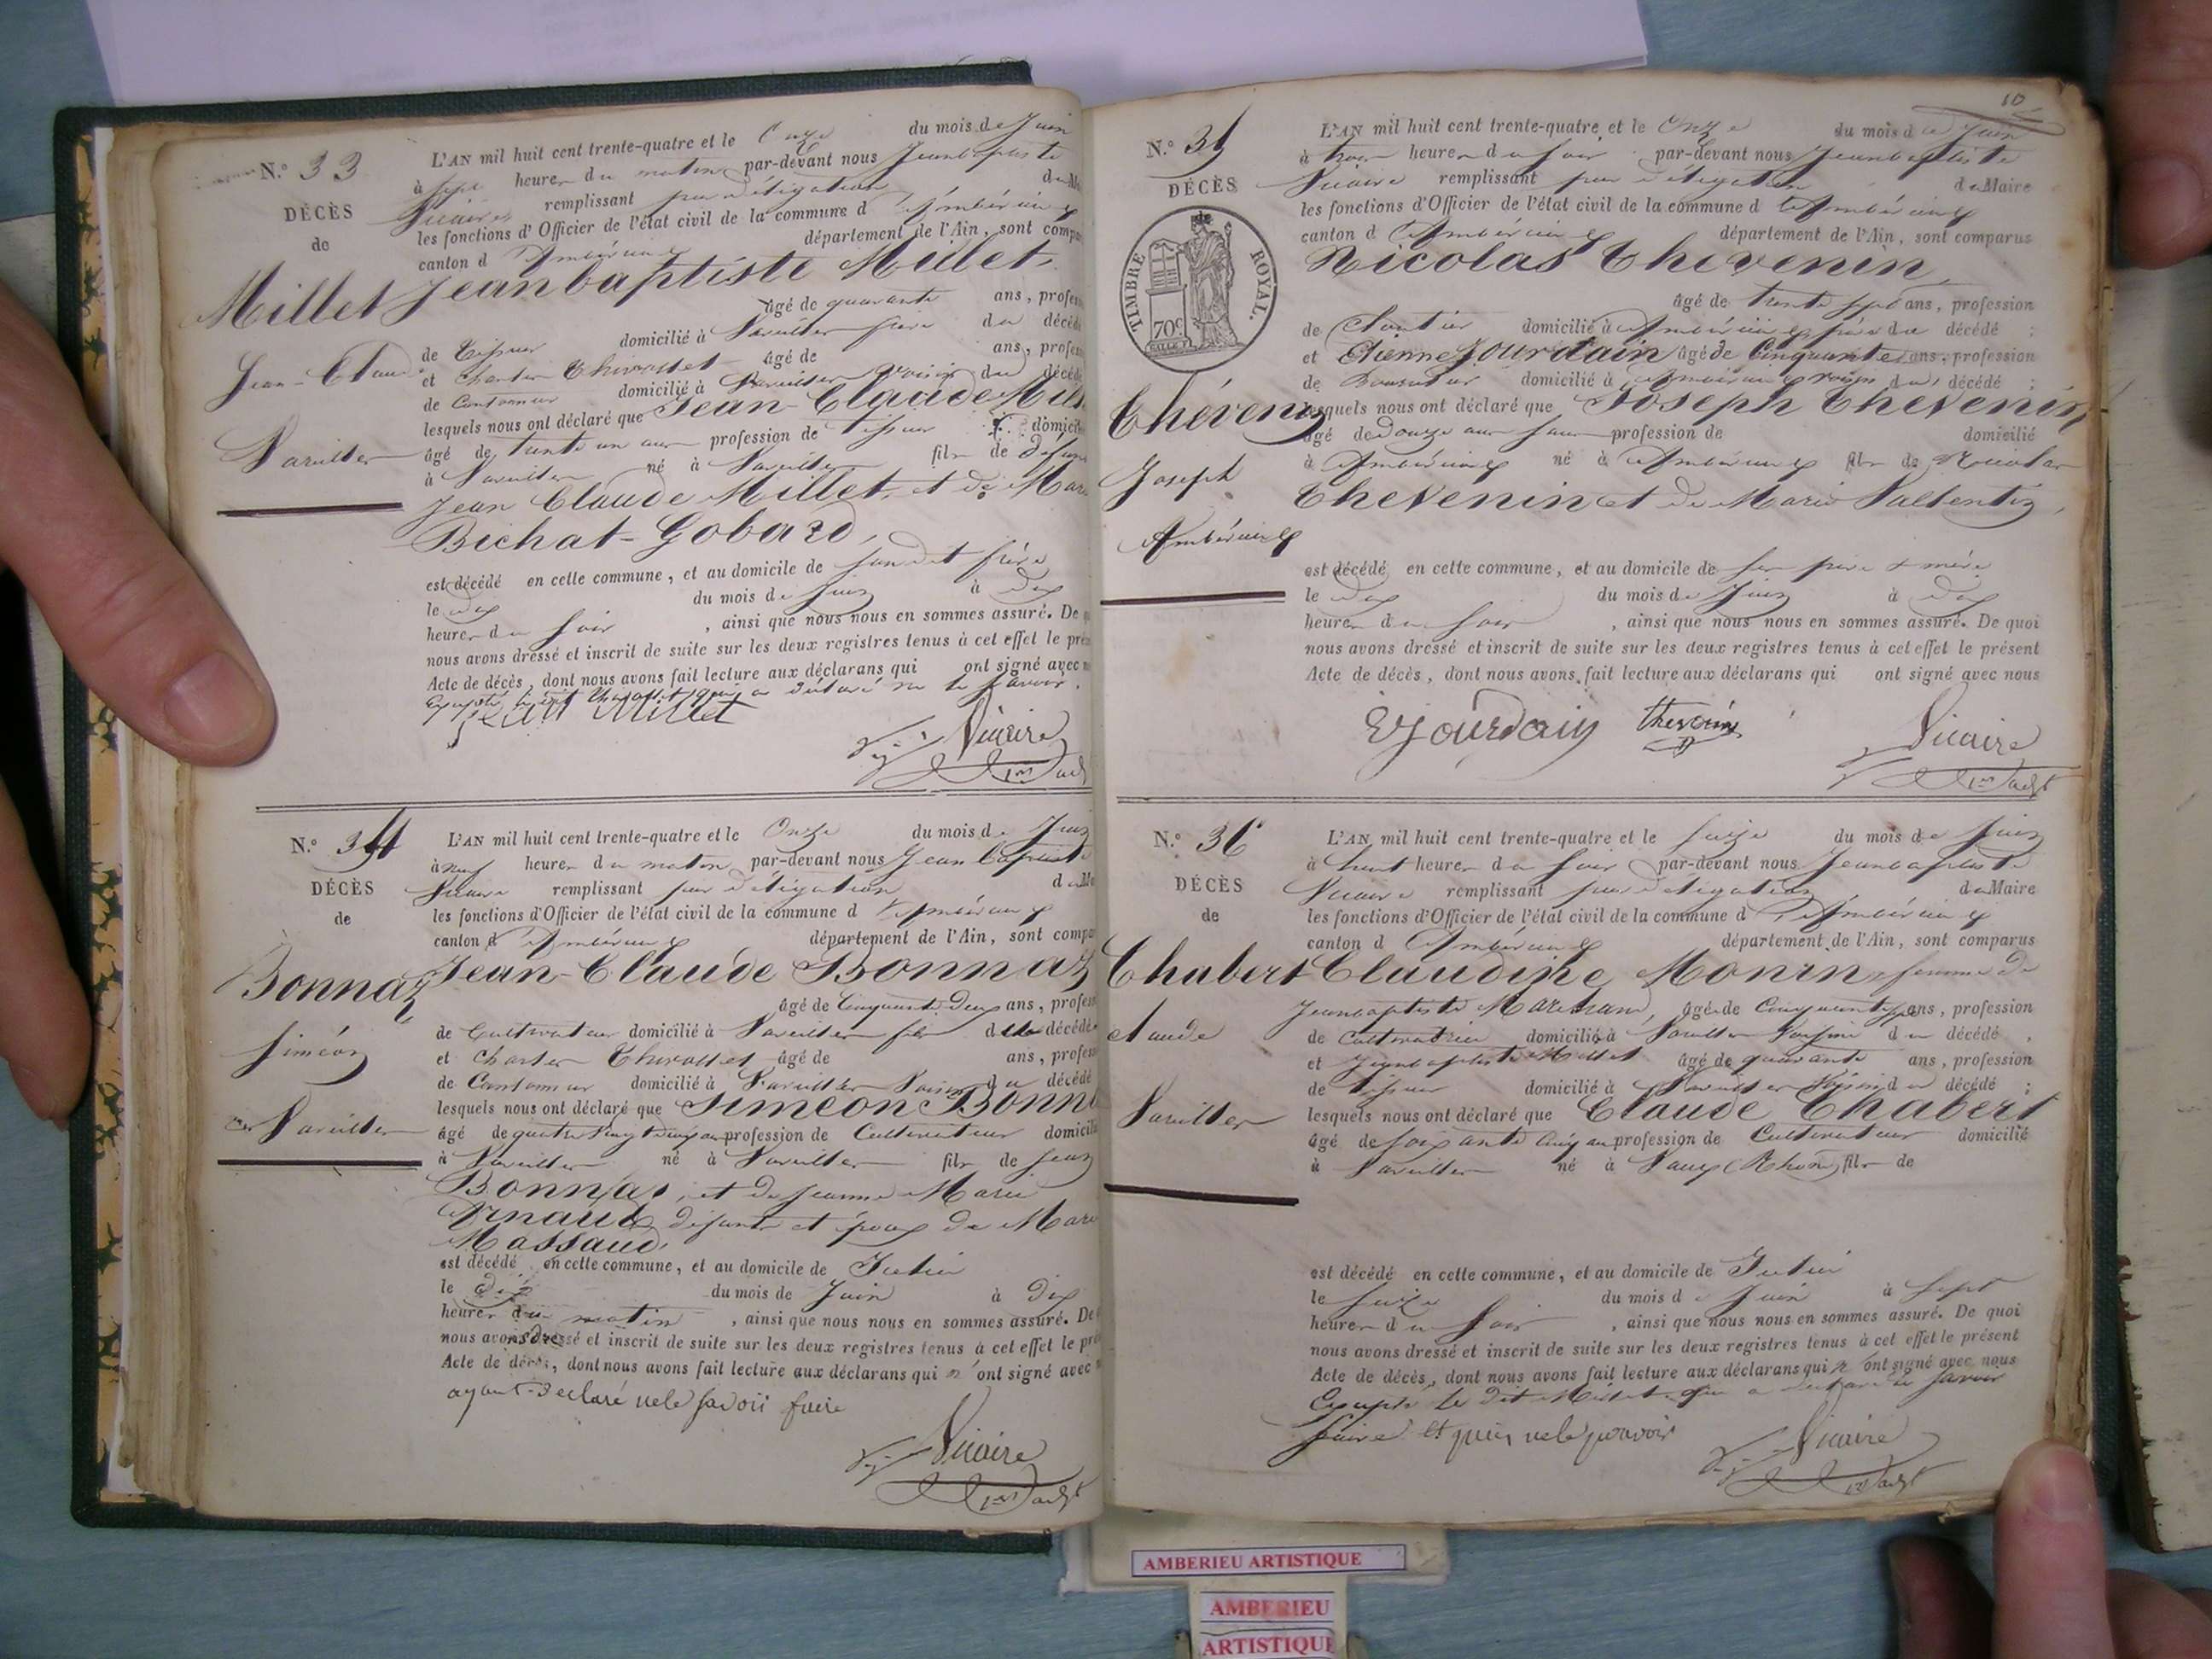 N.º 33
DÉCÈS
de
Millet
Jean-Claude
Vareilles
L'AN mil huit cent trente-quatre et le Onze du mois de Juin
à sept heures du matin par-devant nous Jeanbaptiste
Vicaire remplissant par délégation du
les fonctions d'Officier de l'état civil de la commune d'Ambérieux
canton d'Ambérieux département de l'Ain, sont
Jeanbaptiste Millet,
âgé de quarante ans,
de Tissier domicilié à Vareilles frère du décédé
et Charles Thivollet âgé de ans,
de Cantonnier domicilié à Vareilles voisin du décédé
lesquels nous ont déclaré que Jean-Claude
âgé de trente un ans profession de Tissier
à Vareilles né à Vareilles fils de
Jean Claude Millet, et de
Bichat-Gobard,
est décédé en cette commune, et au domicile de son dit frère
le dix du mois de Juin à dix
heures du soir, ainsi que nous nous en sommes assuré. De
nous avons dressé et inscrit de suite sur les deux registres tenus à cet effet le
Acte de décès, dont nous avons fait lecture aux déclarans qui ont signé avec
Excepté le dit Thivollet qui a déclaré ne le savoir.
jean Millet
Vicaire
N.º 34
DÉCÈS
de
Bonnaz
Siméon
Vareilles
L'AN mil huit cent trente-quatre et le Onze du mois de Juin
à neuf heures du matin par-devant nous Jean Baptiste
Vicaire remplissant par délégation du
les fonctions d'Officier de l'état civil de la commune d'Ambérieux
canton d'Ambérieux département de l'Ain, sont
Jean-Claude Bonnaz
âgé de Cinquante Deux ans,
de Cultivateur domicilié à Vareilles fils du décédé
et Charles Thivollet âgé de ans,
de Cantonnier domicilié à Vareilles Voisin du décédé
lesquels nous ont déclaré que Siméon
âgé de quatre vingt deux ans profession de Cultivateur
à Vareilles né à Vareilles fils de Jean
Bonnaz, et de Jeanne Marie
Arnaud, défunts et époux de
Massaud,
est décédé en cette commune, et au domicile de Icelui
le dix du mois de Juin à Dix
heures du matin, ainsi que nous nous en sommes assuré. De
nous avons dressé et inscrit de suite sur les deux registres tenus à cet effet le
Acte de décès, dont nous avons fait lecture aux déclarans qui n'ont signé avec
ayant déclaré ne le savoir faire
Vicaire
10
N.º 35
DÉCÈS
TIMBRE ROYAL.
70c
Thévenin
Joseph
Ambérieux
L'AN mil huit cent trente-quatre et le Onze du mois de Juin
à trois heures du soir par-devant nous Jeanbaptiste
Vicaire remplissant par délégation du Maire
les fonctions d'Officier de l'état civil de la commune d'Ambérieux
canton d'Ambérieux département de l'Ain, sont comparus
Nicolas Thevenin,
âgé de trente sept ans, profession
de domicilié à Ambérieux père du décédé;
et Etienne Jourdain âgé de Cinquante ans, profession
de domicilié à Ambérieux voisin du décédé;
lesquels nous ont déclaré que Joseph Thevenin
âgé de Douze ans profession de domicilié
à Ambérieux né à Ambérieux fils de Nicolas
Thevenin et de Marie Vallentin,
est décédé en cette commune, et au domicile de ses père et mère
le dix du mois de Juin à dix
heures du soir, ainsi que nous nous en sommes assuré. De quoi
nous avons dressé et inscrit de suite sur les deux registres tenus à cet effet le présent
Acte de décès, dont nous avons fait lecture aux déclarans qui ont signé avec nous
Ejourdain thevenin
Vicaire
N.º 36
DÉCÈS
de
Chabert
Claude
Vareilles
L'AN mil huit cent trente-quatre et le seize du mois de Juin
à huit heures du soir par-devant nous Jeanbaptiste
Vicaire remplissant par délégation du Maire
les fonctions d'Officier de l'état civil de la commune d'Ambérieux
canton d'Ambérieux département de l'Ain, sont comparus
Claudine Monin, femme de
Jeanbaptiste, âgé de ans, profession
de Cultivatrice domicilié à Vareilles Voisine du décédé,
et Jeanbaptiste Millet âgé de quarante ans, profession
de Tissier domicilié à Vareilles Voisin du décédé;
lesquels nous ont déclaré que Claude Chabert
âgé de soixante cinq ans profession de Cultivateur domicilié
à Vareilles né à Vaux (Rhône) fils de
est décédé en cette commune, et au domicile de Icelui
le seize du mois de Juin à sept
heures du soir, ainsi que nous nous en sommes assuré. De quoi
nous avons dressé et inscrit de suite sur les deux registres tenus à cet effet le présent
Acte de décès, dont nous avons fait lecture aux déclarans qui n'ont signé avec nous
Excepté le dit Millet qui a déclaré le savoir
faire et ne le pouvoir
Vicaire
AMBERIEU ARTISTIQUE
AMBERIEU
ARTISTIQUE